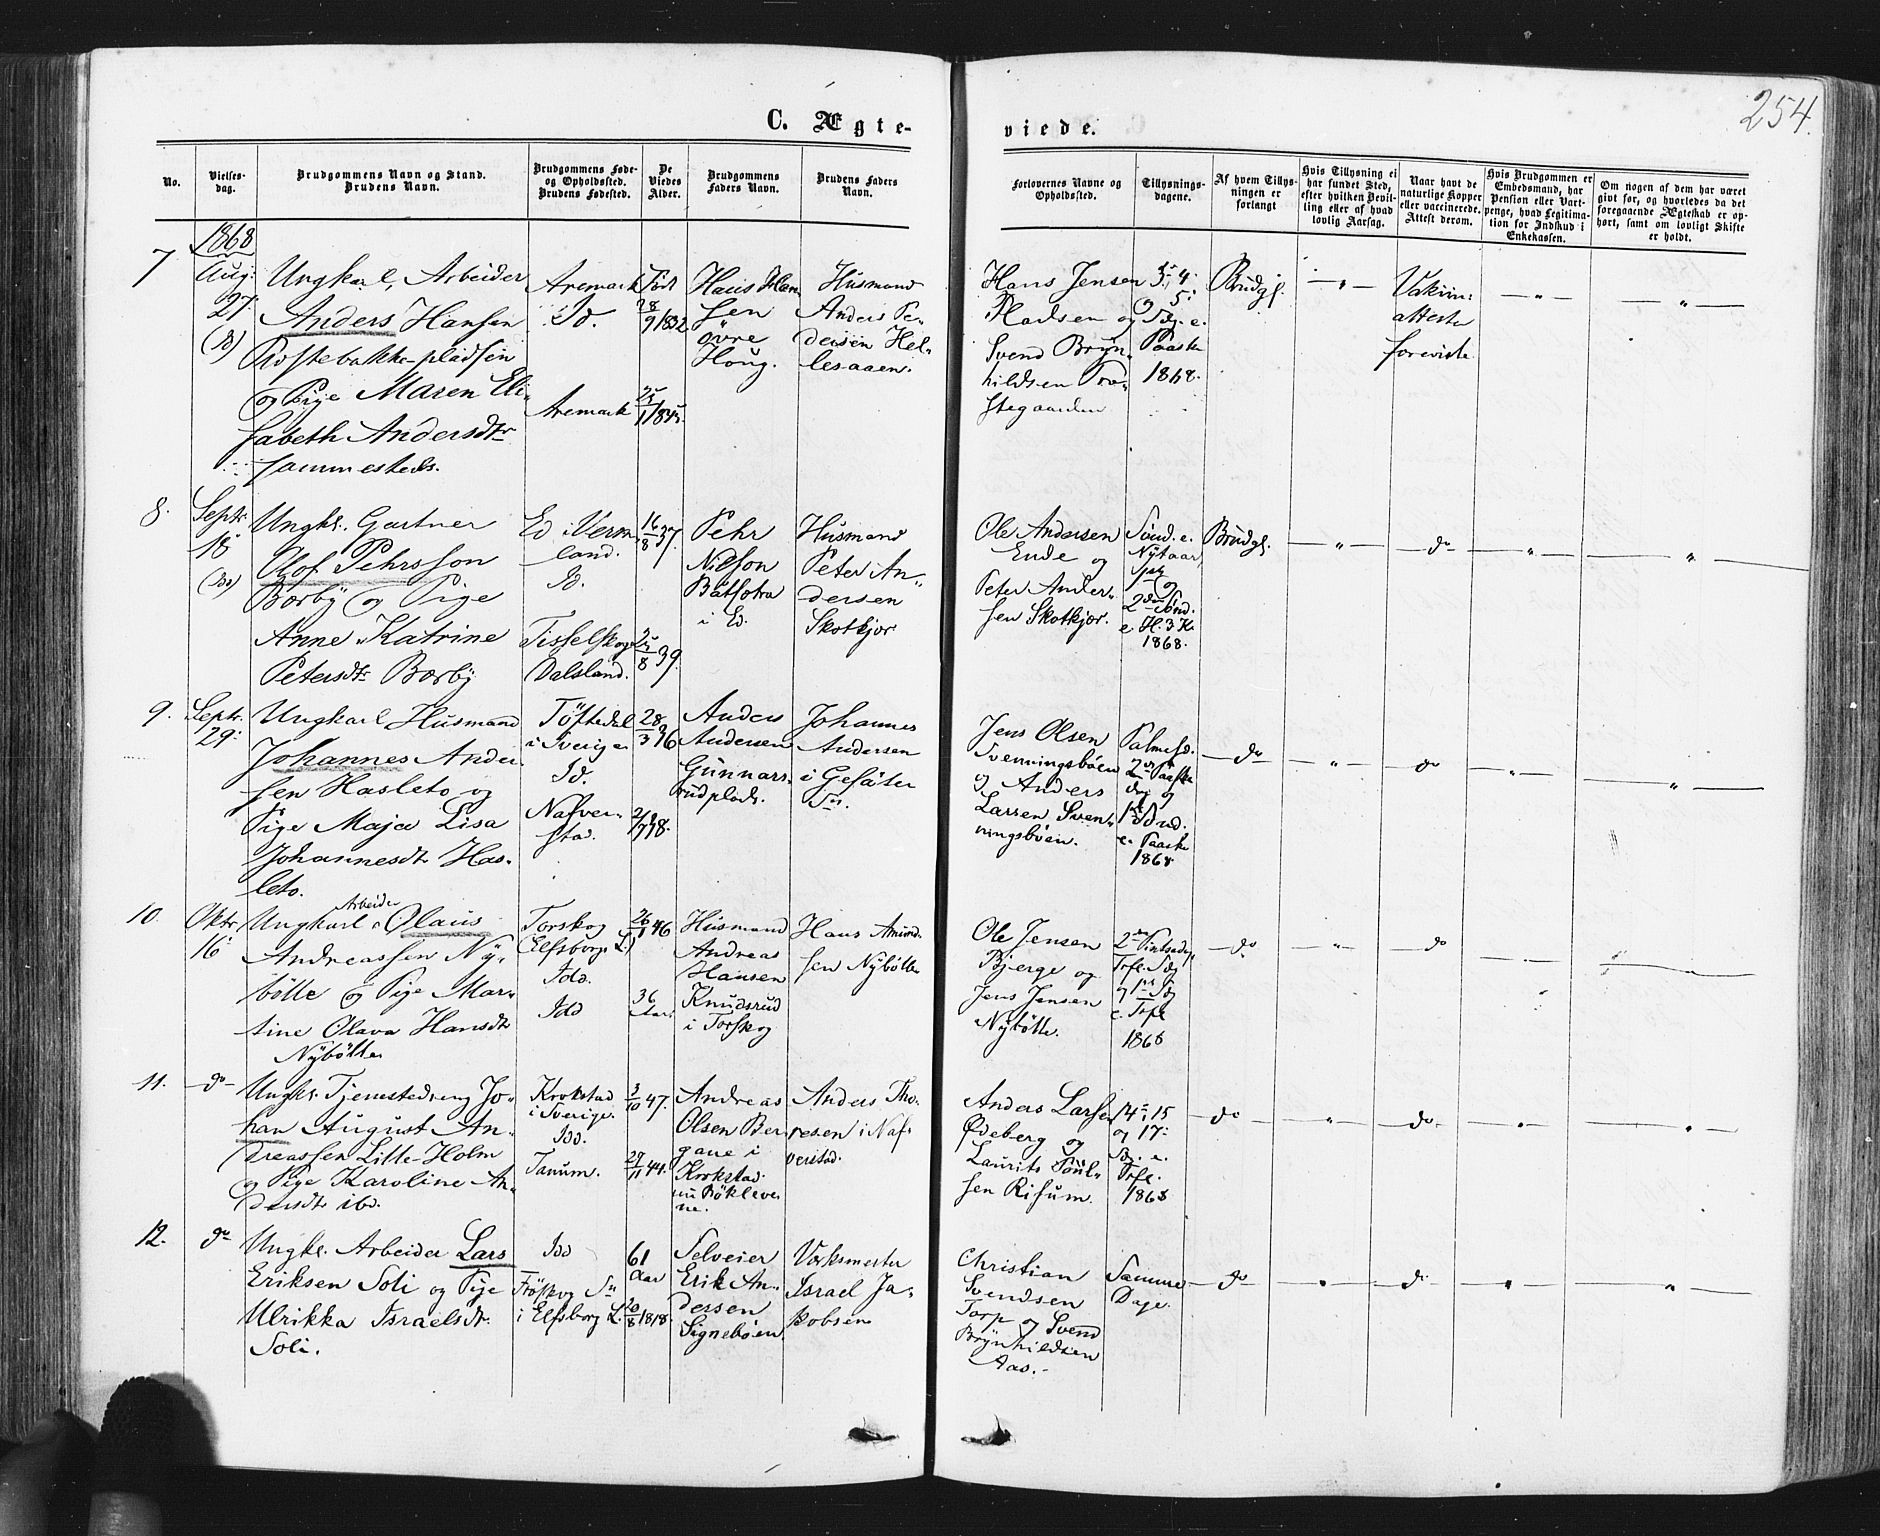 254.
C. Ægte-
viede.
No.
Vielses-
dag.
Brudgommens Navn og Stand.
Brudens Navn.
Brudgommens Føde-
og Opholdssted.
Brudens Fødested.
De
Viedes
Alder.
Brudgommens
Faders Navn.
Brudens Faders
Navn.
Forlovernes Navne og
Opholdssted.
Tillysnings-
dagene.
Af hvem Tillys-
ningen er
forlangt
Hvis Tillysning ei
har fundet Sted,
efter hvilken Bevil-
ling eller af hvad
lovlig Aarsag.
Naar havt de
naturlige Kopper
eller vaccinerede.
Attest derom.
Hvis Brudgommen er
Embedsmand, har
Pension eller Vart-
penge, hvad Legitima-
tion for Indskud i
Enkekassen.
Om nogen af dem har været
givt før, og hvorledes da det
foregaaende Ægteskab er op-
hørt, samt om lovligt Skifte
er holdt.
1868
7
Aug:
27.
Ungkarl, Arbeider
Anders Hansen
og Pige Maren Eli-
sabeth Andersdtr
sammesteds.
Aremark
Id.
Aremark
Født
28/9 1832.
25/1 1845.
Hans Han
sen
øvre
Houg.
Husmand
Anders Pe-
dersen Hel-
lesaaen.
Hans Jensen
og
Svend Bryn-
hildsen
3, 4
og 5
Sdg. e.
Paaske
1868.
Brudg.
Vakcin:
attester
foreviste
8.
Septr.
18
Ungkl. Gartner
Olof Pehrsson
Børby og Pige
Anne Katrine
Petersdtr Børby
Ed i Verm
land.
Id.
Tisselskog
Dalsland.
16/8 37.
25/8 39.
Pehr
Nilson
Båtsotra
i Ed.
Husmand
Peter An-
dersen
Skotkjør
Ole Andersen
Ende og
Peter Ander-
sen Skotkjør.
Sønd. e.
Nytaar
og
2den Sønd.
e. H. 3 K.
1868.
Brudgl.
do
9.
Septr.
29.
Ungkarl Husmand
Johannes Ander
sen Hasleto og
Pige Maja Lisa
Johannesdtr Has-
leto.
Töftedal
i Sverige
Id.
Nafver-
stad.
28/3 36
Anders
Andersen
Gunnars-
rudplads.
Johannes
Andersen
i Gesäter
Sn.
Jens Olsen
Svenningsbøen
og Anders
Larsen Sven-
ningsbøen.
Palmesd.
2den Paaske
dag og
1st Sønd.
e. Paaske
1868
do
do
10.
Oktr
16
Arbeider
Ungkarl Olaus
Andreassen Ny-
bølle og Pige Mar-
tine Olava Hansdtr
Nybølle
Torskog
(Elfsborgs L.)
Idd.
Idd
26/1 46
36
Aar
Husmand
Andreas
Hansen
Knudsrud
i Torskog
Hans Amund-
sen Nybølle
Ole Jensen
Bjerge og
Jens Jensen
Nybølle.
2den Pintsedag,
Trfe. Sdg
og 1st Sdg
e. Trfe
1868
do
do
11.
do
Ungkl. Tjenestedreng Jo-
han August An-
dreassen Lille-Holm
og Pige Karoline An-
dersdtr ibd.
Krokstad
i Sverige.
Idd.
Tanum.
3/10 47.
29/11 44.
Andreas
Olsen Ber
gane i
Krokstad
Anders Tho-
resen i Naf-
verstad.
Anders Larsen
Ødeberg og
Laurits Poul-
sen Risum.
14, 15
og 17
Sdg. e.
Trfe.
1868
do
do
12.
do
Ungkl. Arbeider Lars
Eriksen Soli og Pige
Ulrikka Israelsdtr.
Soli.
Idd
Fröskog Sn
i Elfsborg L.
61
Aar
20/8 1818.
Selveier
Erik An-
dersen
Signebøen.
Værksmester
Israel Ja-
kobsen
Christian
Svendsen
Torp og Svend
Brynhildsen
Aas.
Samme
Dage.
do
do